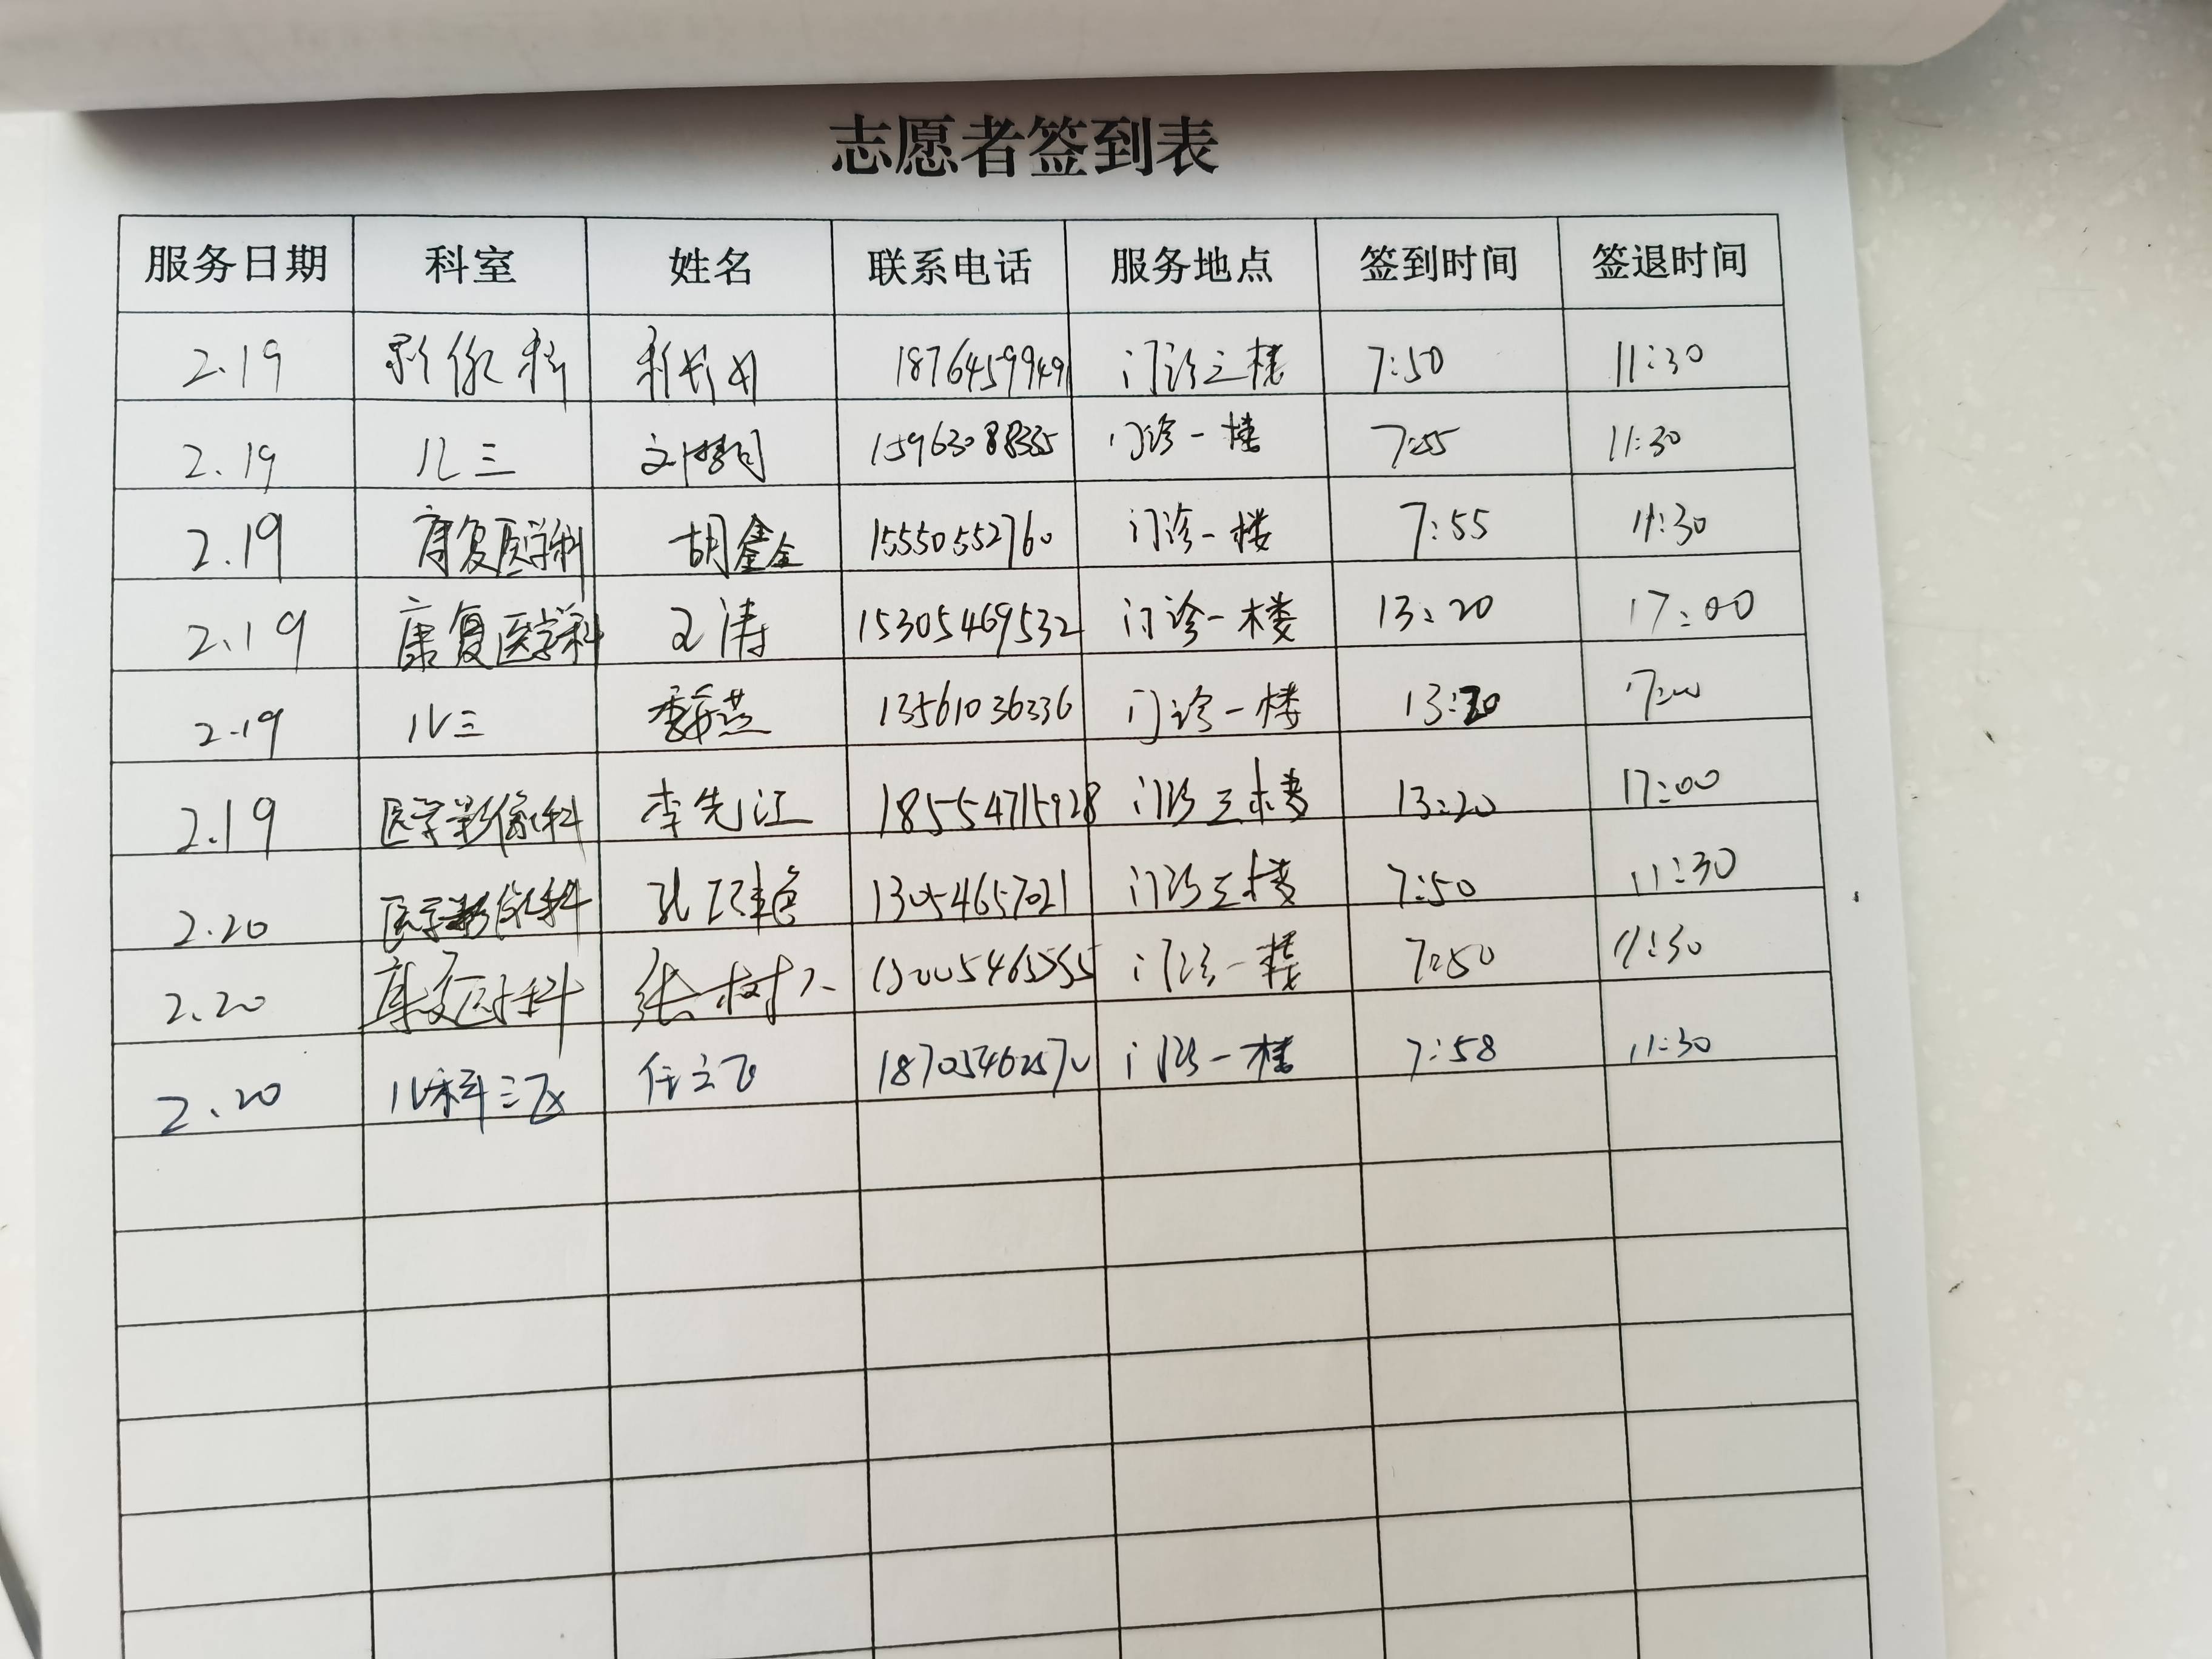 志愿者签到表
服务日期 科室 姓名 联系电话 服务地点 签到时间 签退时间
2.19 影像科 18764599491 门诊三楼 7:50 11:30
2.19 儿三 15963088335 门诊一楼 7:55 11:30
2.19 康复医学科 胡鑫 15550552760 门诊一楼 7:55 11:30
2.19 康复医学科 王涛 15305469532 门诊一楼 13:20 17:00
2.19 儿三 13561036336 门诊一楼 13:20 17:00
2.19 医学影像科 李先江 18554715928 门诊三楼 13:20 17:00
2.20 医学影像科 13054657021 门诊三楼 7:50 11:30
2.20 康复医学科 张树 门诊一楼 7:50 11:30
2.20 儿科三区 任立飞 门诊一楼 7:58 11:30